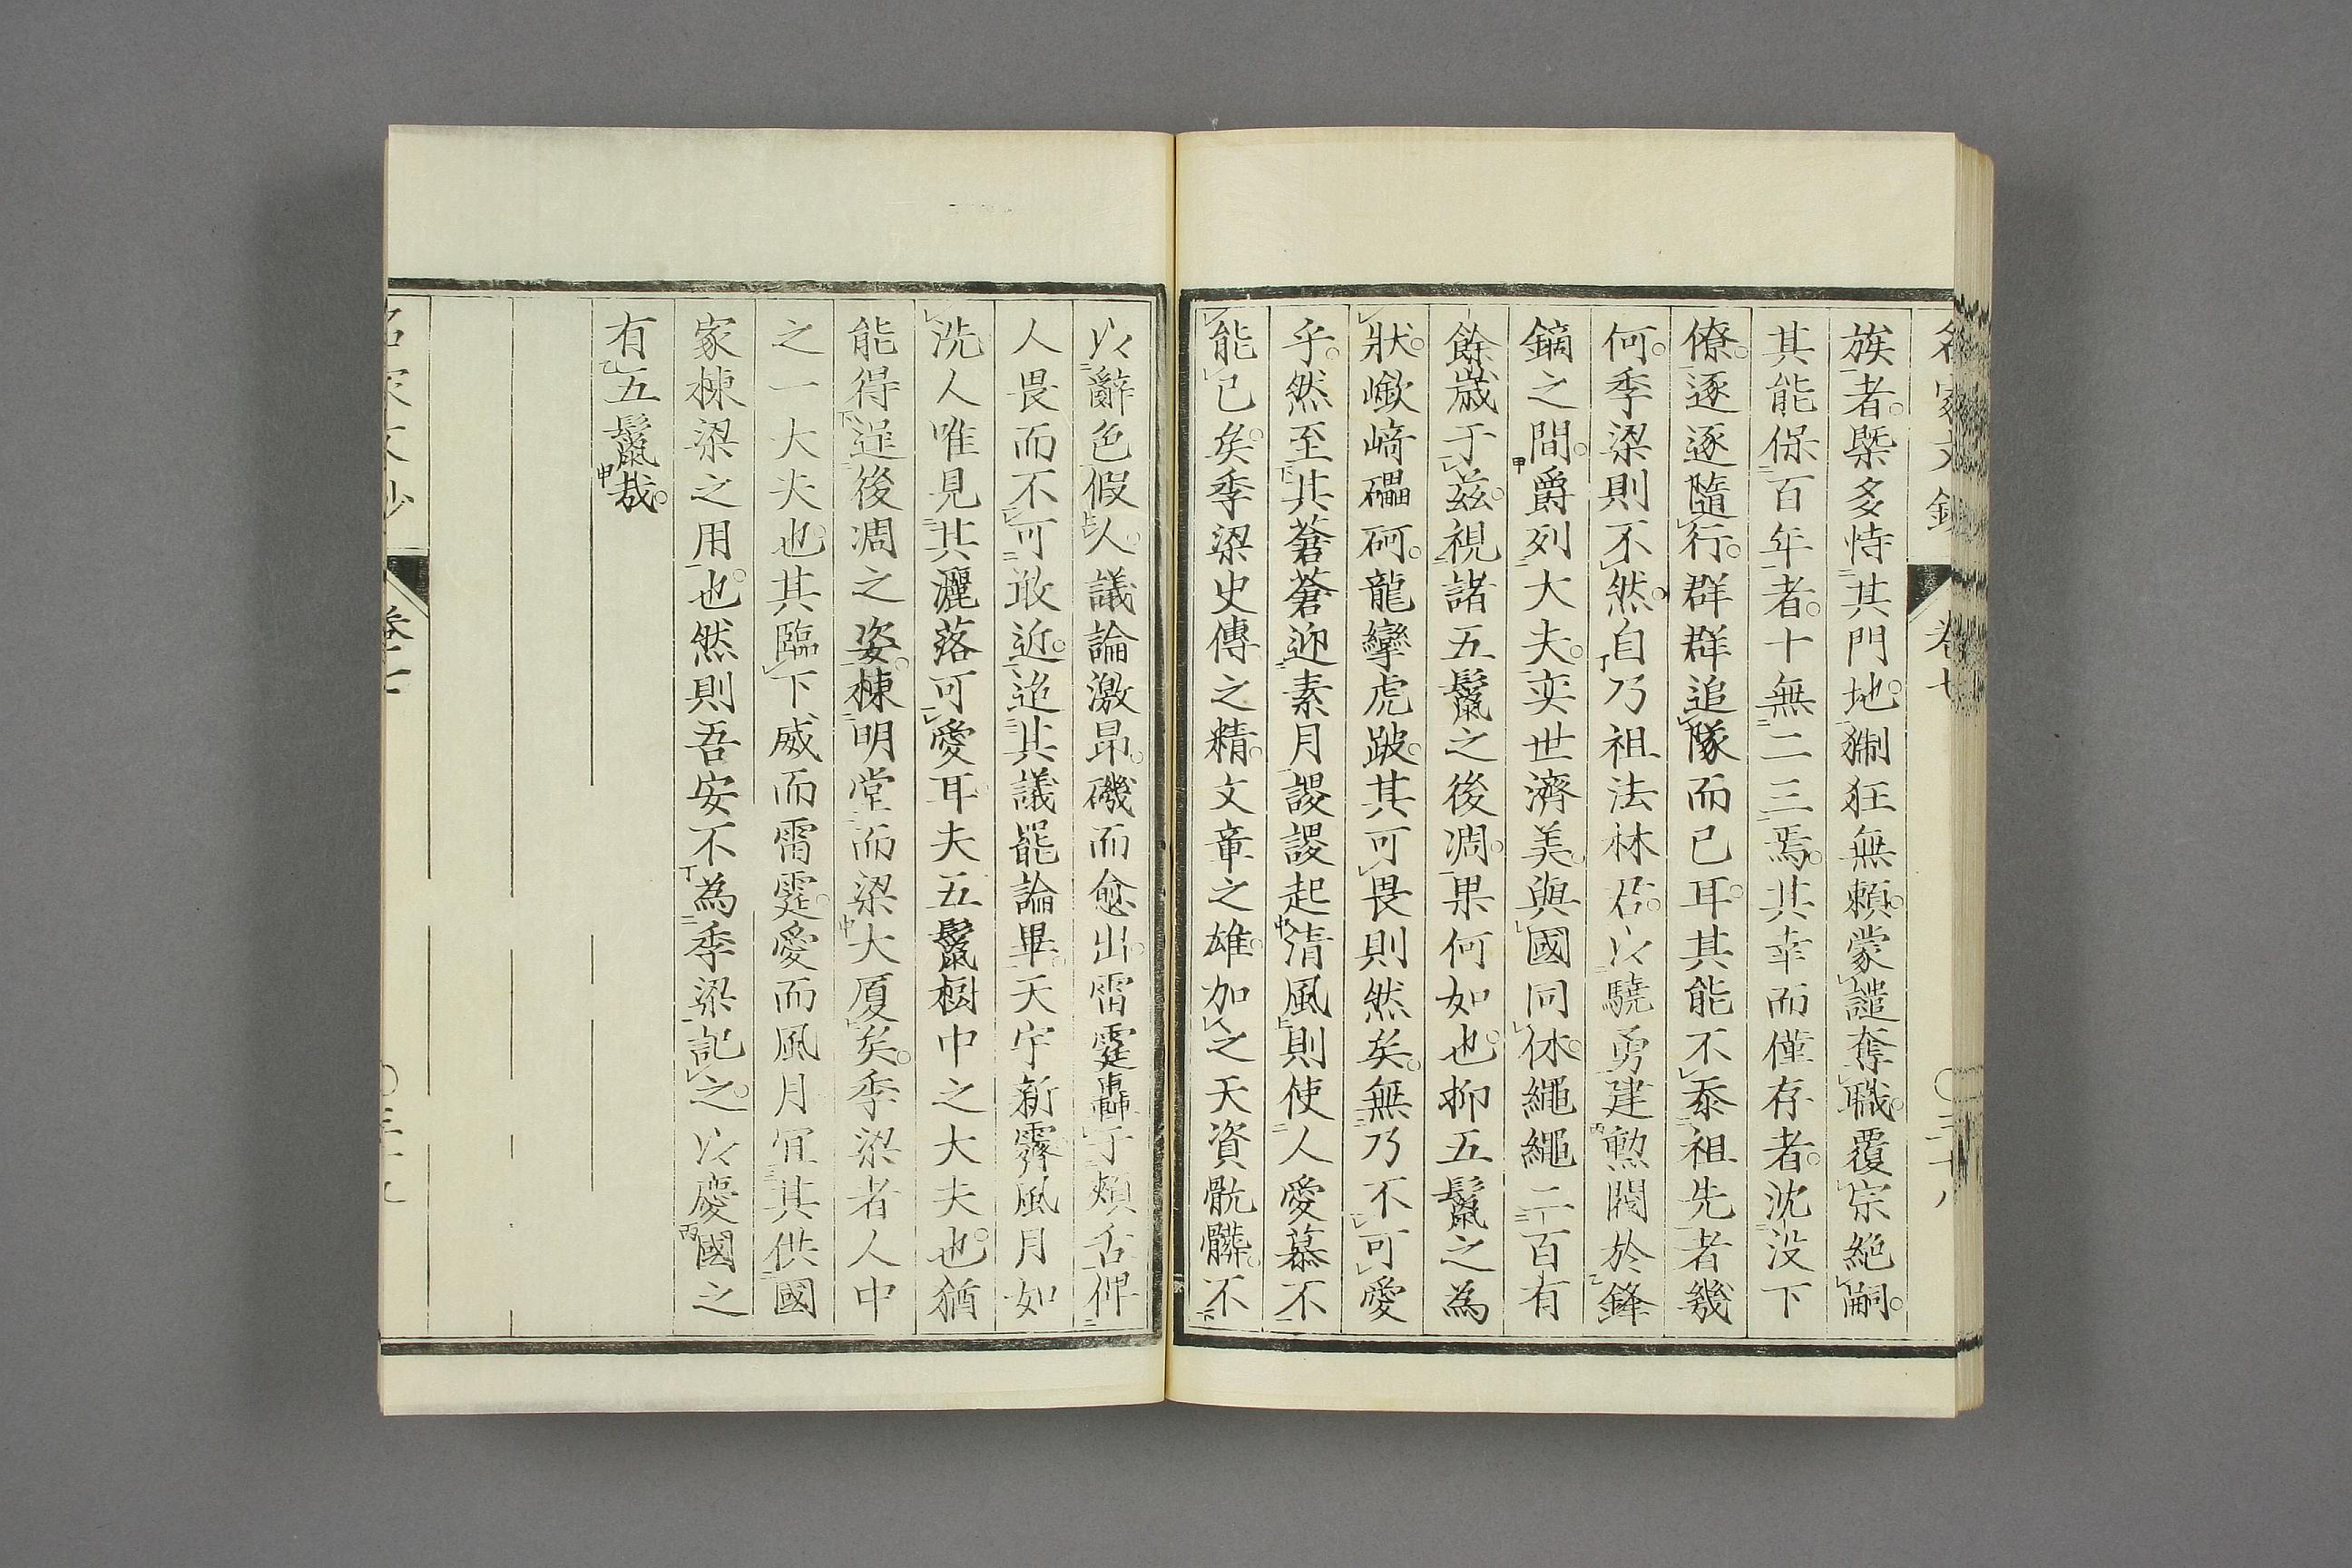 族者槩多恃其門地猘狂無賴蒙譴奪職覆宗絶嗣
其能保百年者十無二三焉其幸而僅存者沈没下
僚逐逐隨行群群追隊而已耳其能不忝祖先者幾
何季梁則不然自乃祖法林君以驍勇建勲閥於鋒
鏑之間爵列大夫奕世濟美與國同休繩繩二百有
餘歳于茲視諸五鬣之後凋果何如也抑五鬣之為
狀嶔﨑礧砢龍攣虎跛其可畏則然矣無乃不可愛
乎然至其蒼蒼迎素月謖謖起清風則使人愛慕不
能已矣季梁史傳之精文章之雄加之天資骯髒不
以辭色假人議論激昂磯而愈出雷霆轟于頰舌俾
人畏而不可敢近迨其議罷論畢天宇新霽風月如
洗人唯見其灑落可愛耳夫五鬣樹中之大夫也猶
能得逞後凋之姿棟明堂而梁大厦矣季梁者人中
之一大夫也其臨下威而雷霆愛而風月宜其供國
家棟梁之用也然則吾安不為季梁記之以慶國之
有五鬣哉